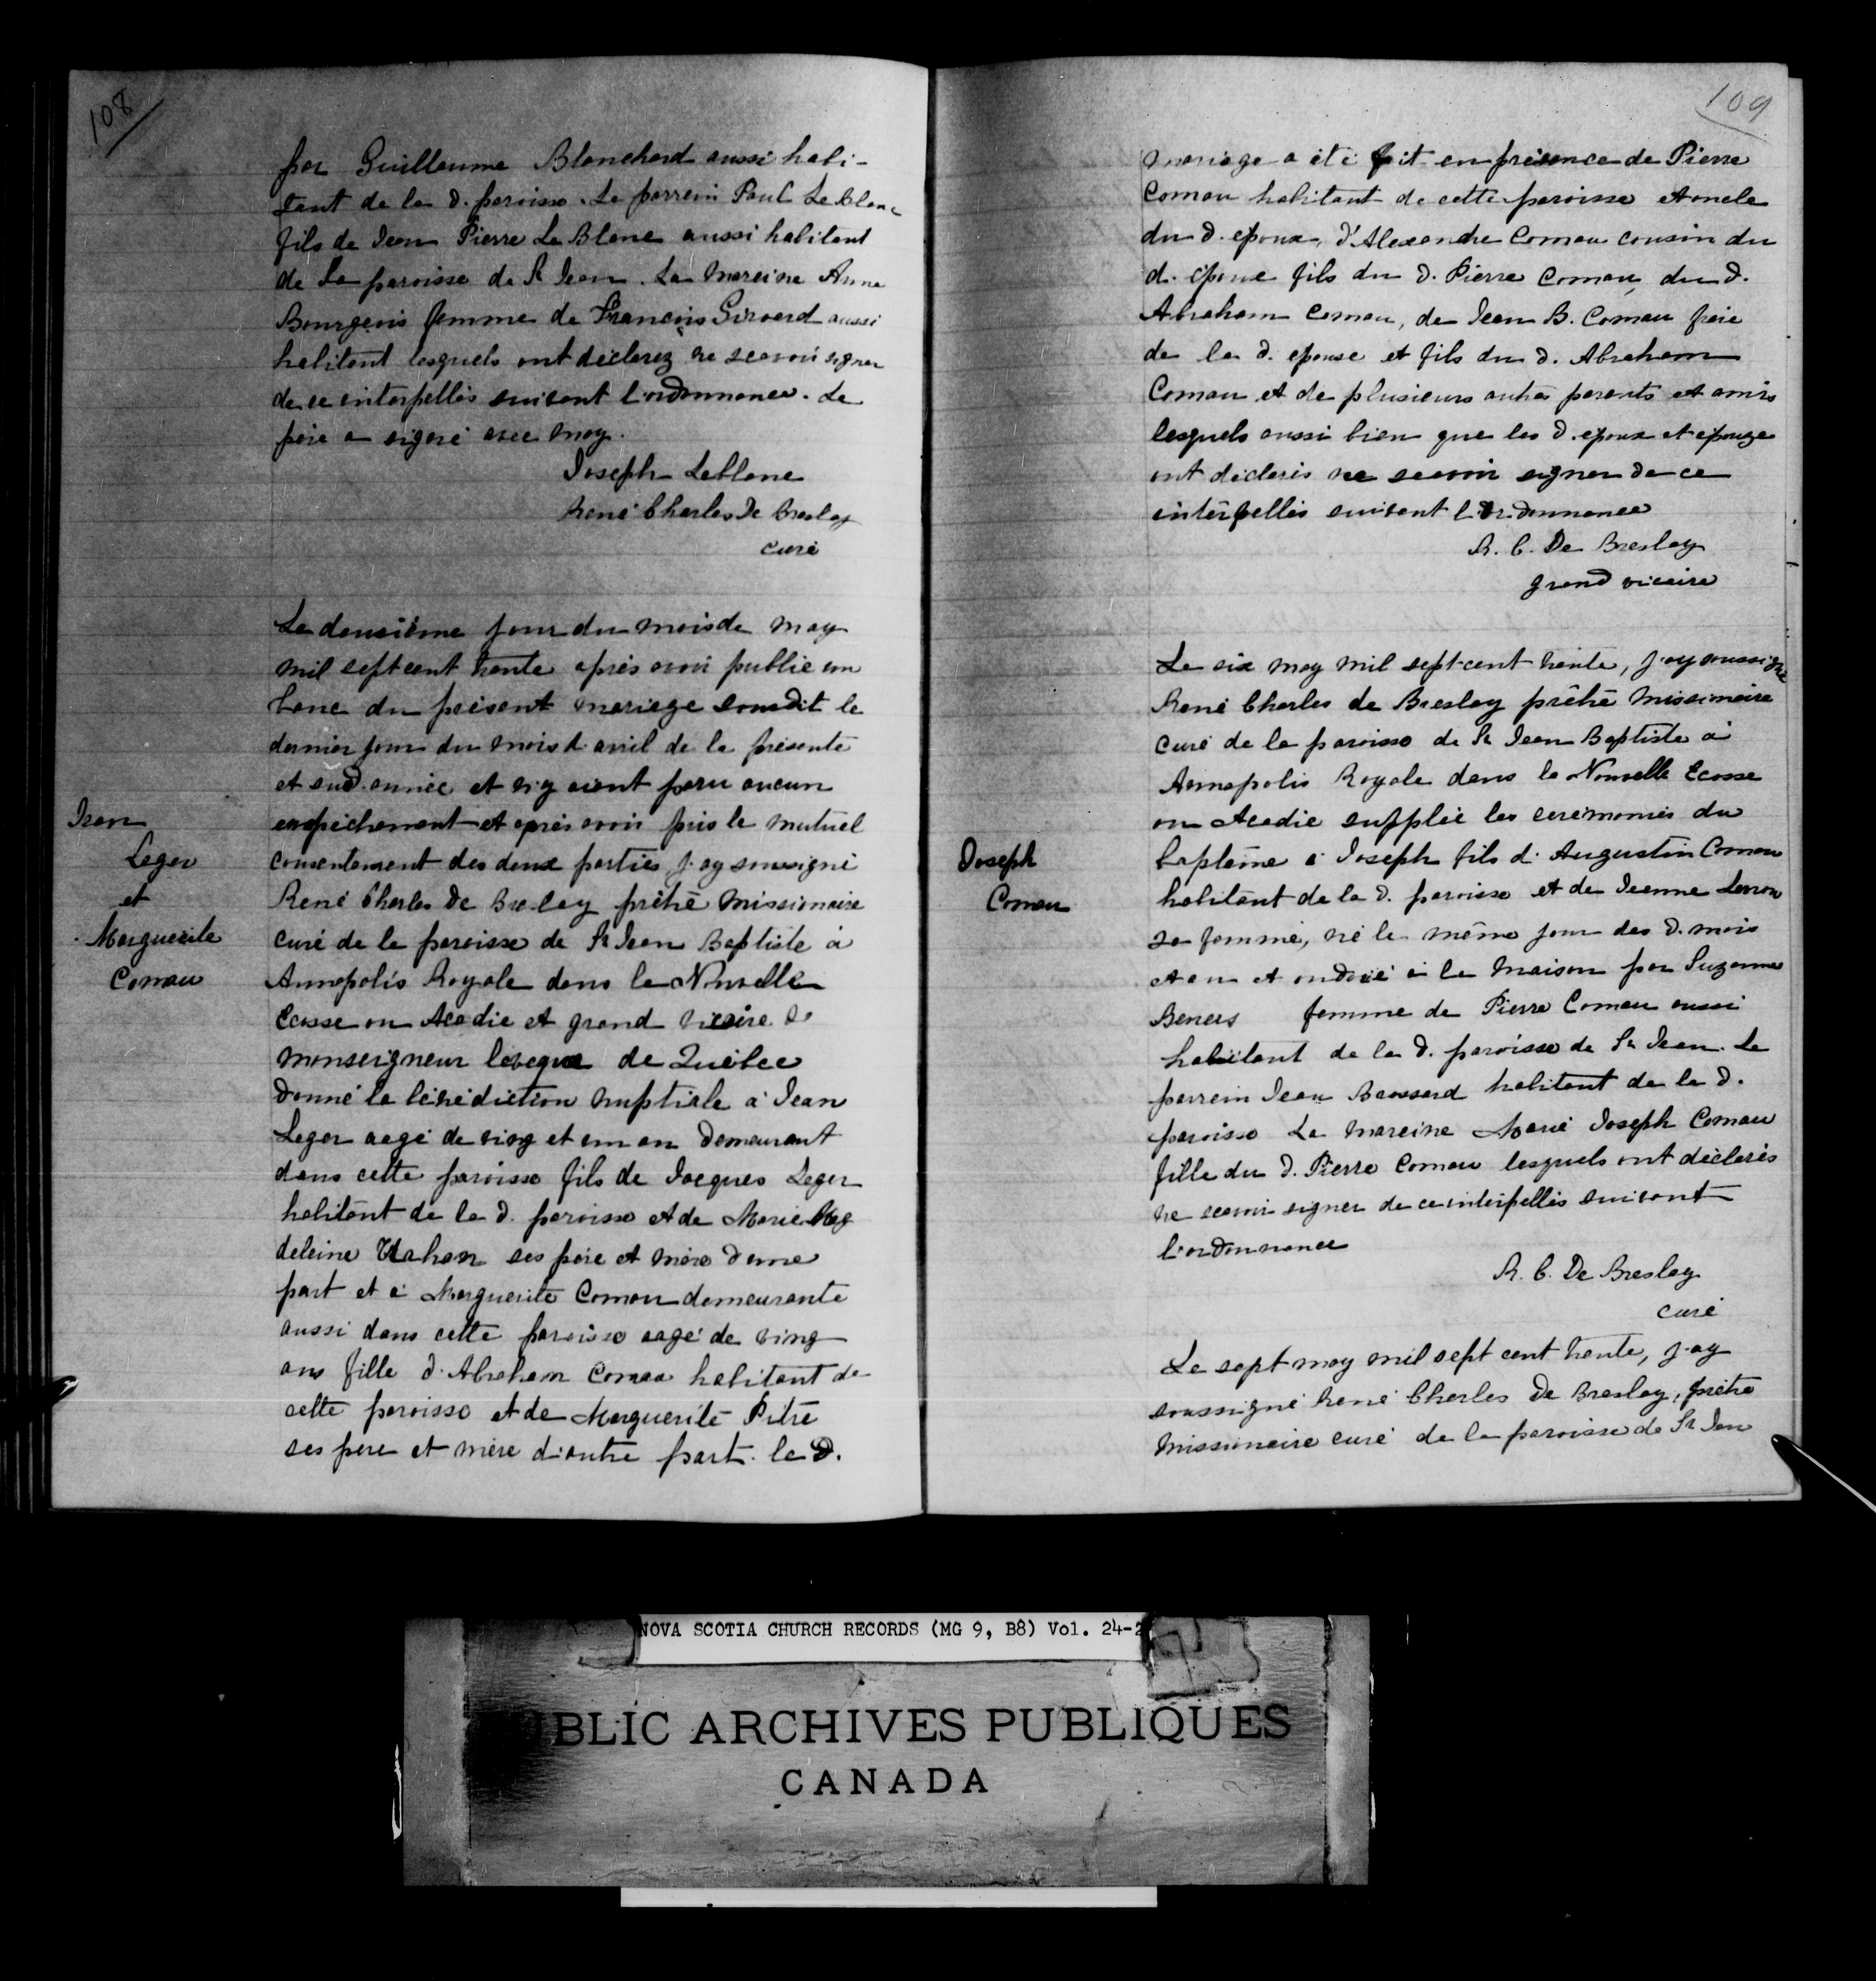 108
par Guillaume Blanchard aussi habi-
tant de la d. paroisse. Le parrein Paul Le Blanc
fils de Jean Pierre Le Blanc aussi habitant
de La paroisse de St Jean. La Mareine Anne
Bourgeois femme de François Girouard aussi
habitant lesquels ont declarez ne scavoir signer
de ce interpellés suivant l'ordonnance. Le
père a signé avec moy.
Joseph Leblanc
René Charles De Breslay
curé
Le deusiême jour du mois de may
mil sept cent trente après avoir publié un
banc du présent mariage le
dernier jour du mois d'avril de la présente
et sud. année et n'y aiant paru aucun
empêchement et après avoir pris le mutuel
consentement des deux parties j'ay soussigné
René Charles De Breslay prêtre Missionnaire
curé de la paroisse de St Jean Baptiste à
Annapolis Royale dans la Nouvelle
Ecosse ou Acadie et grand vicaire de
Monseigneur leveque de Québec
donné la bénédiction nuptiale à Jean
Leger aagé de ving et un an demeurant
dans cette paroisse fils de Jacques Leger
habitant de la d. paroisse et de Marie Mag
deleine Trahan ses père et mère d'une
part et à Marguerite Comau demeurante
aussi dans cette paroisse aagé de ving
ans fille d'Abraham Comau habitant de
cette paroisse et de Marguerite Pitre
ses pere et mère d'autre part. le d.
Jean
Leger
et
Marguerite
Comau
109
mariage a été fait en présence de Pierre
Comau habitant de cette paroisse et oncle
du d. epoux, d'Alexandre Comau cousin du
d. épouse fils du d. Pierre Comau, du d.
Abraham Comau, de Jean B. Comau frère
de la d. epouse et fils du d. Abraham
Comau et de plusieurs autres parents et amis
lesquels aussi bien que les d. epoux et epouze
ont déclarés ne scavoir signer de ce
interpellés suivant l'ordonnance
R. C. De Breslay
grand vicaire
Le six may mil sept cent trente, j'ay soussigné
René Charles de Breslay prêtre Missionaire
curé de la paroisse de St Jean Baptiste à
Annapolis Royale dans la Nouvelle Ecosse
ou Acadie supplée les ceremonies du
baptême à Joseph fils d'Augustin Comau
habitant de la d. paroisse et de Jeanne
sa femme, né le même jour des d. mois
et an et ondoié à la Maison par Suzanne
Beners femme de Pierre Comau aussi
habitant de la d. paroisse de St Jean. Le
parrein Jean Baussard habitant de la d.
paroisse La mareine Marie Joseph Comau
fille du d. Pierre Comau lesquels ont déclarés
ne scavoir signer de ce interpellés suivant
l'ordonnance
R. C. De Breslay
curé
Le sept may mil sept cent trente, j'ay
soussigné René Charles De Breslay, prêtre
Missionaire curé de la paroisse de St Jean
Joseph
Comau
NOVA SCOTIA CHURCH RECORDS (MG 9, B8) Vol. 24-2
BLIC ARCHIVES PUBLIQUES
CANADA